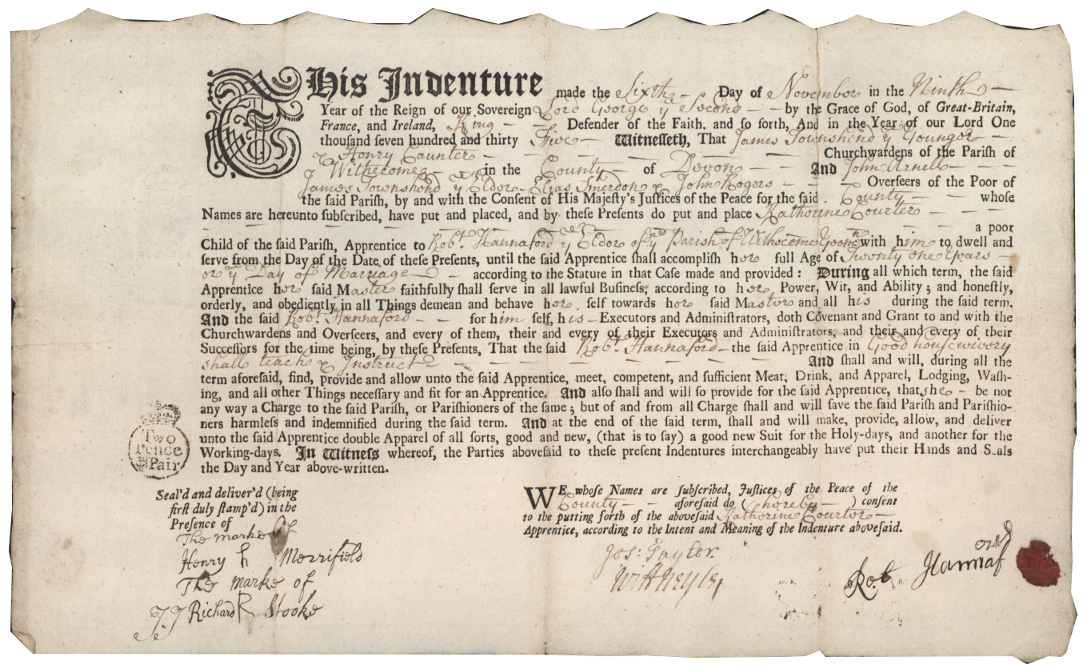 This Indenture made the Sixth Day of November in the Ninth
Year of the Reign of our Sovereign Lord George ye Second by the Grace of God, of Great-Britain,
France, and Ireland, King Defender of the Faith, and so forth, And in the Year of our Lord One
thousand seven hundred and thirty Five Witnesseth, That James Townshend ye Younger
& Henry Caunter Churchwardens of the Parish of
Withecombe in the County of Devon And John Arnell
James Townshend ye Elder Elias Smerdon & John Rogers Overseers of the Poor of
the said Parish, by and with the Consent of His Majesty's Justices of the Peace for the said County whose
Names are hereunto subscribed, have put and placed, and by these Presents do put and place Katherine Courter
a poor
Child of the said Parish, Apprentice to Robt. Hannaford ye Elder of ye Parish of with him to dwell and
serve from the Day of the Date of these Presents, until the said Apprentice shall accomplish her full Age of Twenty one Years
or ye Day of Marriage according to the Statute in that Case made and provided: During all which term, the said
Apprentice her said Master faithfully shall serve in all lawful Business, according to her Power, Wit, and Ability; and honestly,
orderly, and obediently in all Things demean and behave her self towards her said Master and all his during the said term.
And the said Robt. Hannaford for him self, his Executors and Administrators, doth Covenant and Grant to and with the
Churchwardens and Overseers, and every of them, their and every of their Executors and Administrators, and their and every of their
Successors for the time being, by these Presents, That the said Robt. Hannaford the said Apprentice in Good housewivery
shall teach & Instruct And shall and will, during all the
term aforesaid, find, provide and allow unto the said Apprentice, meet, competent, and sufficient Meat, Drink, and Apparel, Lodging, Wash-
ing, and all other Things necessary and fit for an Apprentice. And also shall and will so provide for the said Apprentice, that she be not
any way a Charge to the said Parish, or Parishioners of the same; but of and from all Charge shall and will save the said Parish and Parishio-
ners harmless and indemnified during the said term. And at the end of the said term, shall and will make, provide, allow, and deliver
unto the said Apprentice double Apparel of all sorts, good and new, (that is to say) a good new Suit for the Holy-days, and another for the
Working-days. In Witness whereof, the Parties abovesaid to these present Indentures interchangeably have put their Hands and Seals
the Day and Year above-written.
Two
Pence
Pair
Seal'd and deliver'd (being
first duly stamp'd) in the
Presence of
The marke of
Henry h Merrifield
The marke of
Richard R Stooke
WE whose Names are subscribed, Justices of the Peace of the
County aforesaid do (hereby) consent
to the putting forth of the abovesaid Katherine Courter
Apprentice, according to the Intent and Meaning of the Indenture abovesaid.
Jos: Tayler
Rob Hannaford